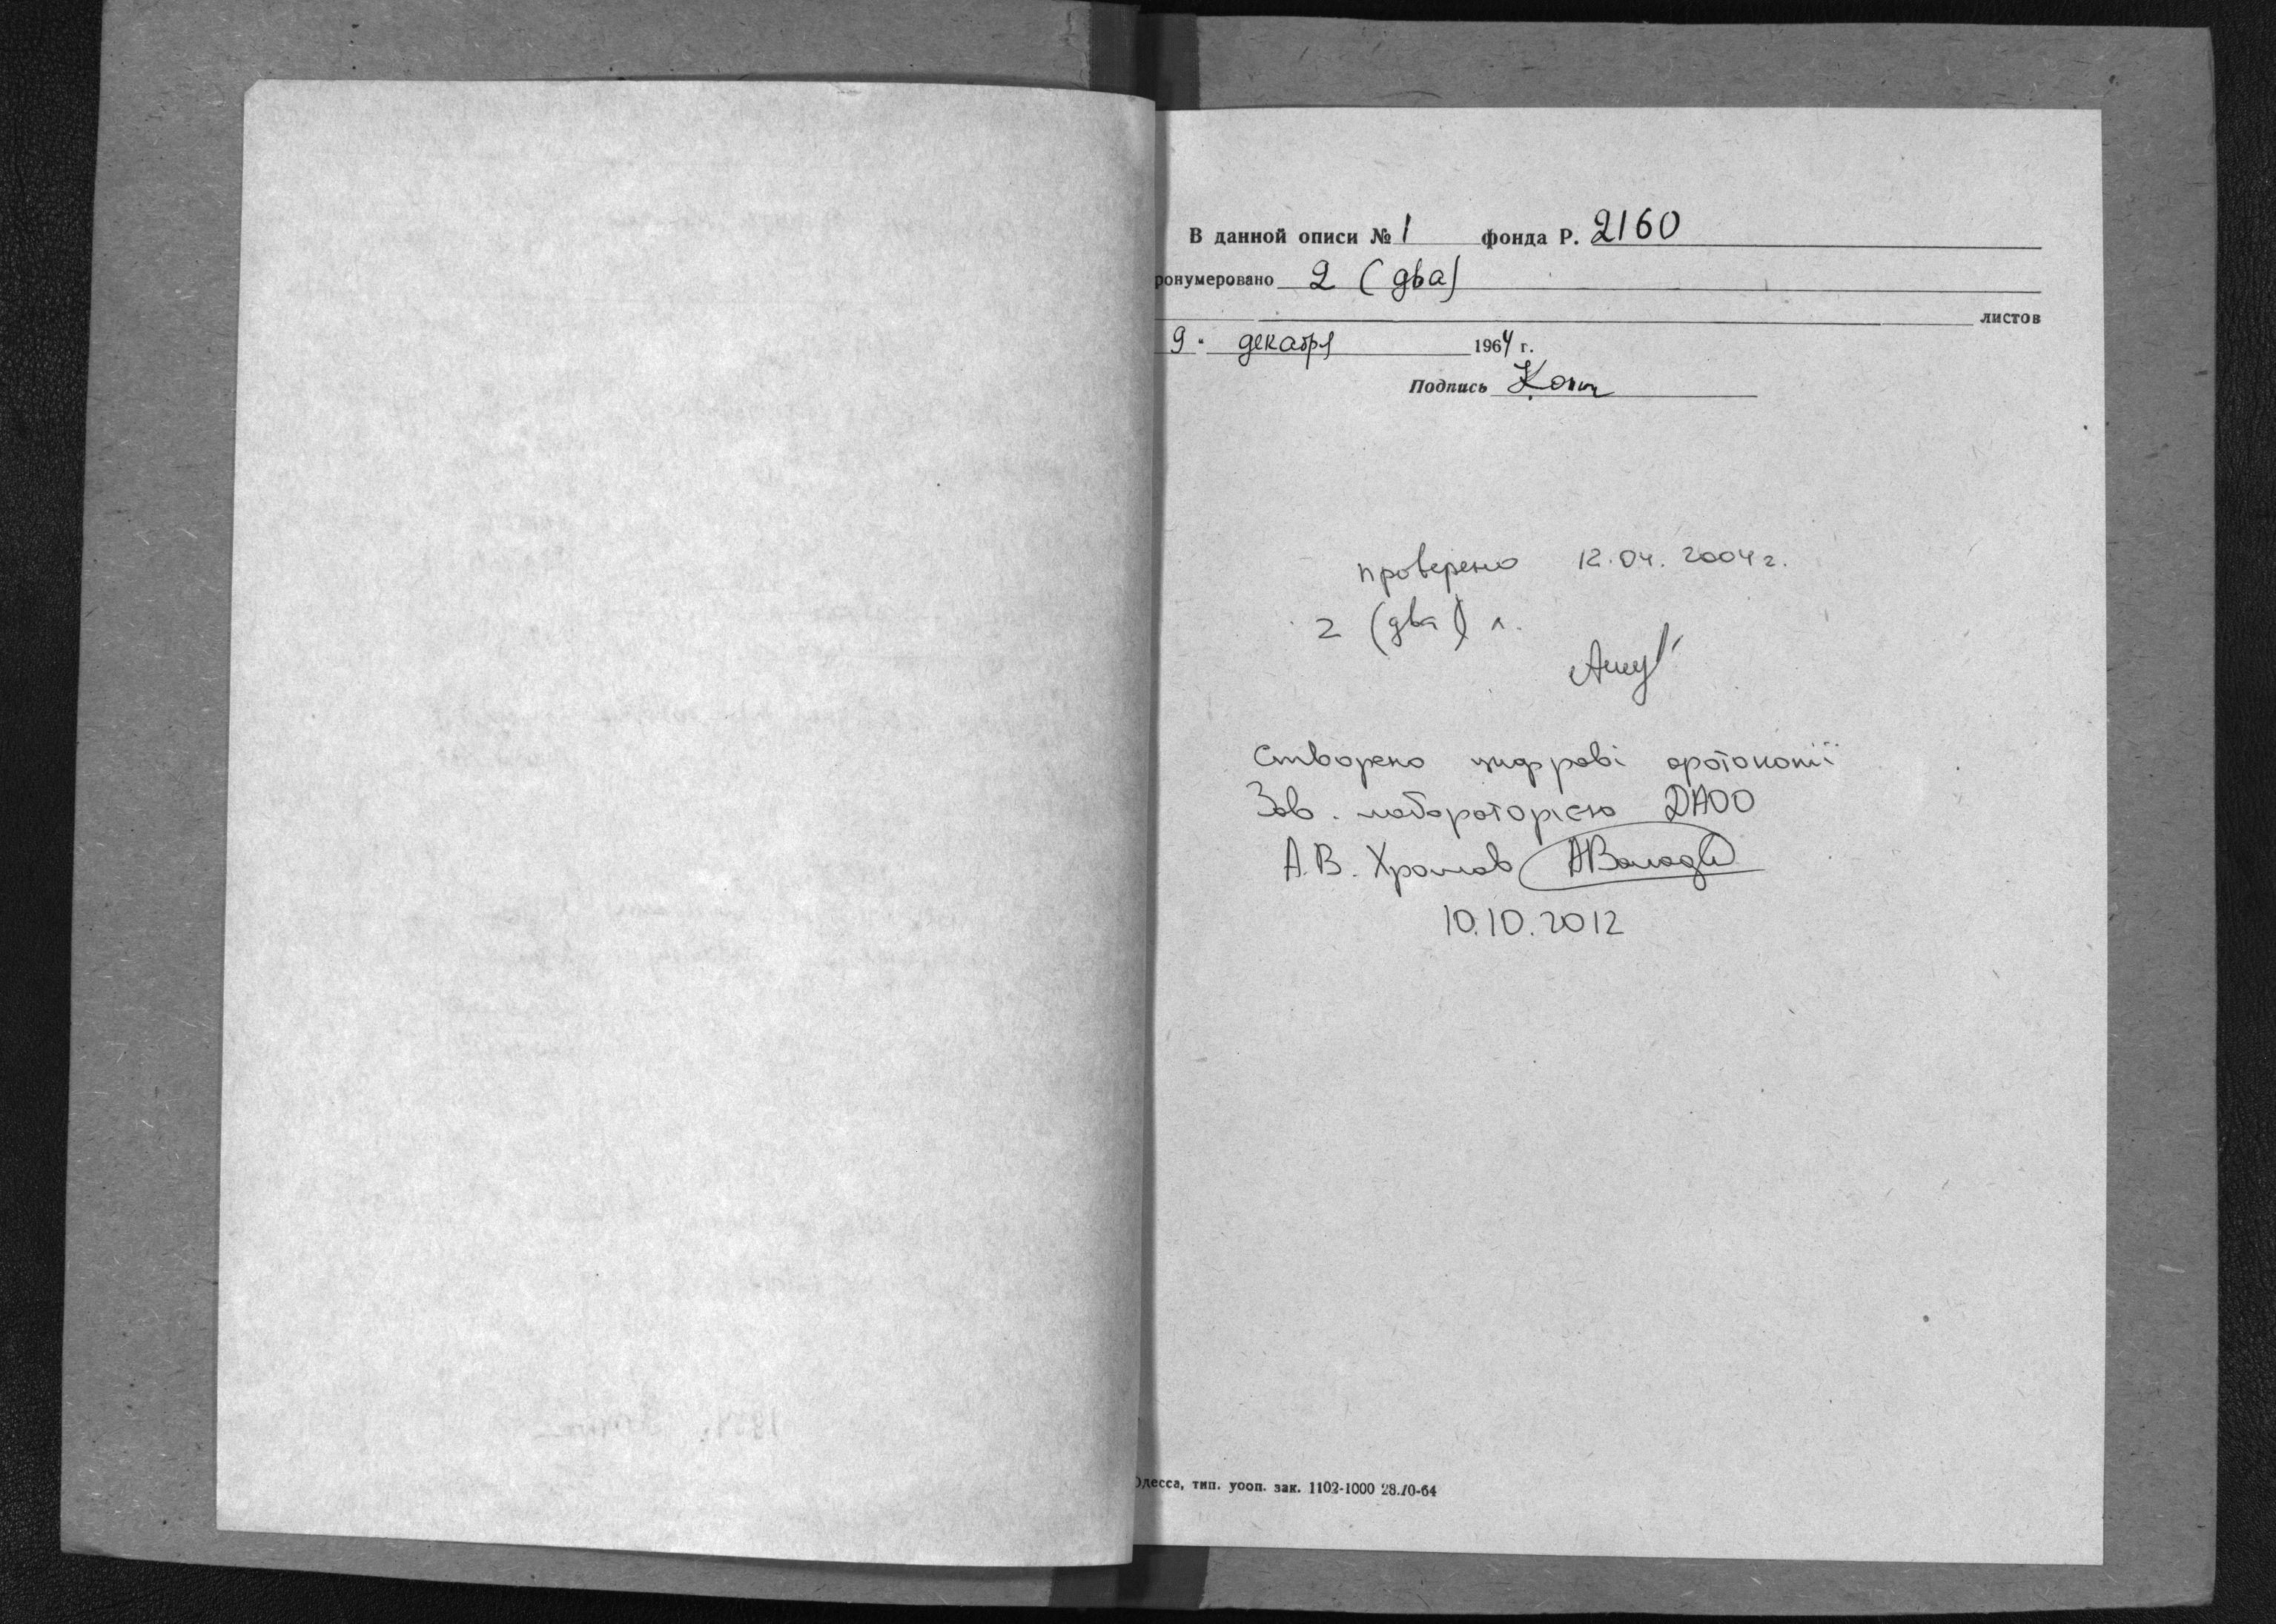 В данной описи № 1 фонда Р. 2160
ронумеровано 2 (два)
листов
9 " декабря 1964 г.
Подпись
проверено 12.04.2004 г.
2 (два) л.
Створено цифрові фотокопії
Зав. лабораторією ДАОО
А.В. Храмов
10.10.2012
Одесса, тип. уооп. зак. 1102-1000 28.10-64